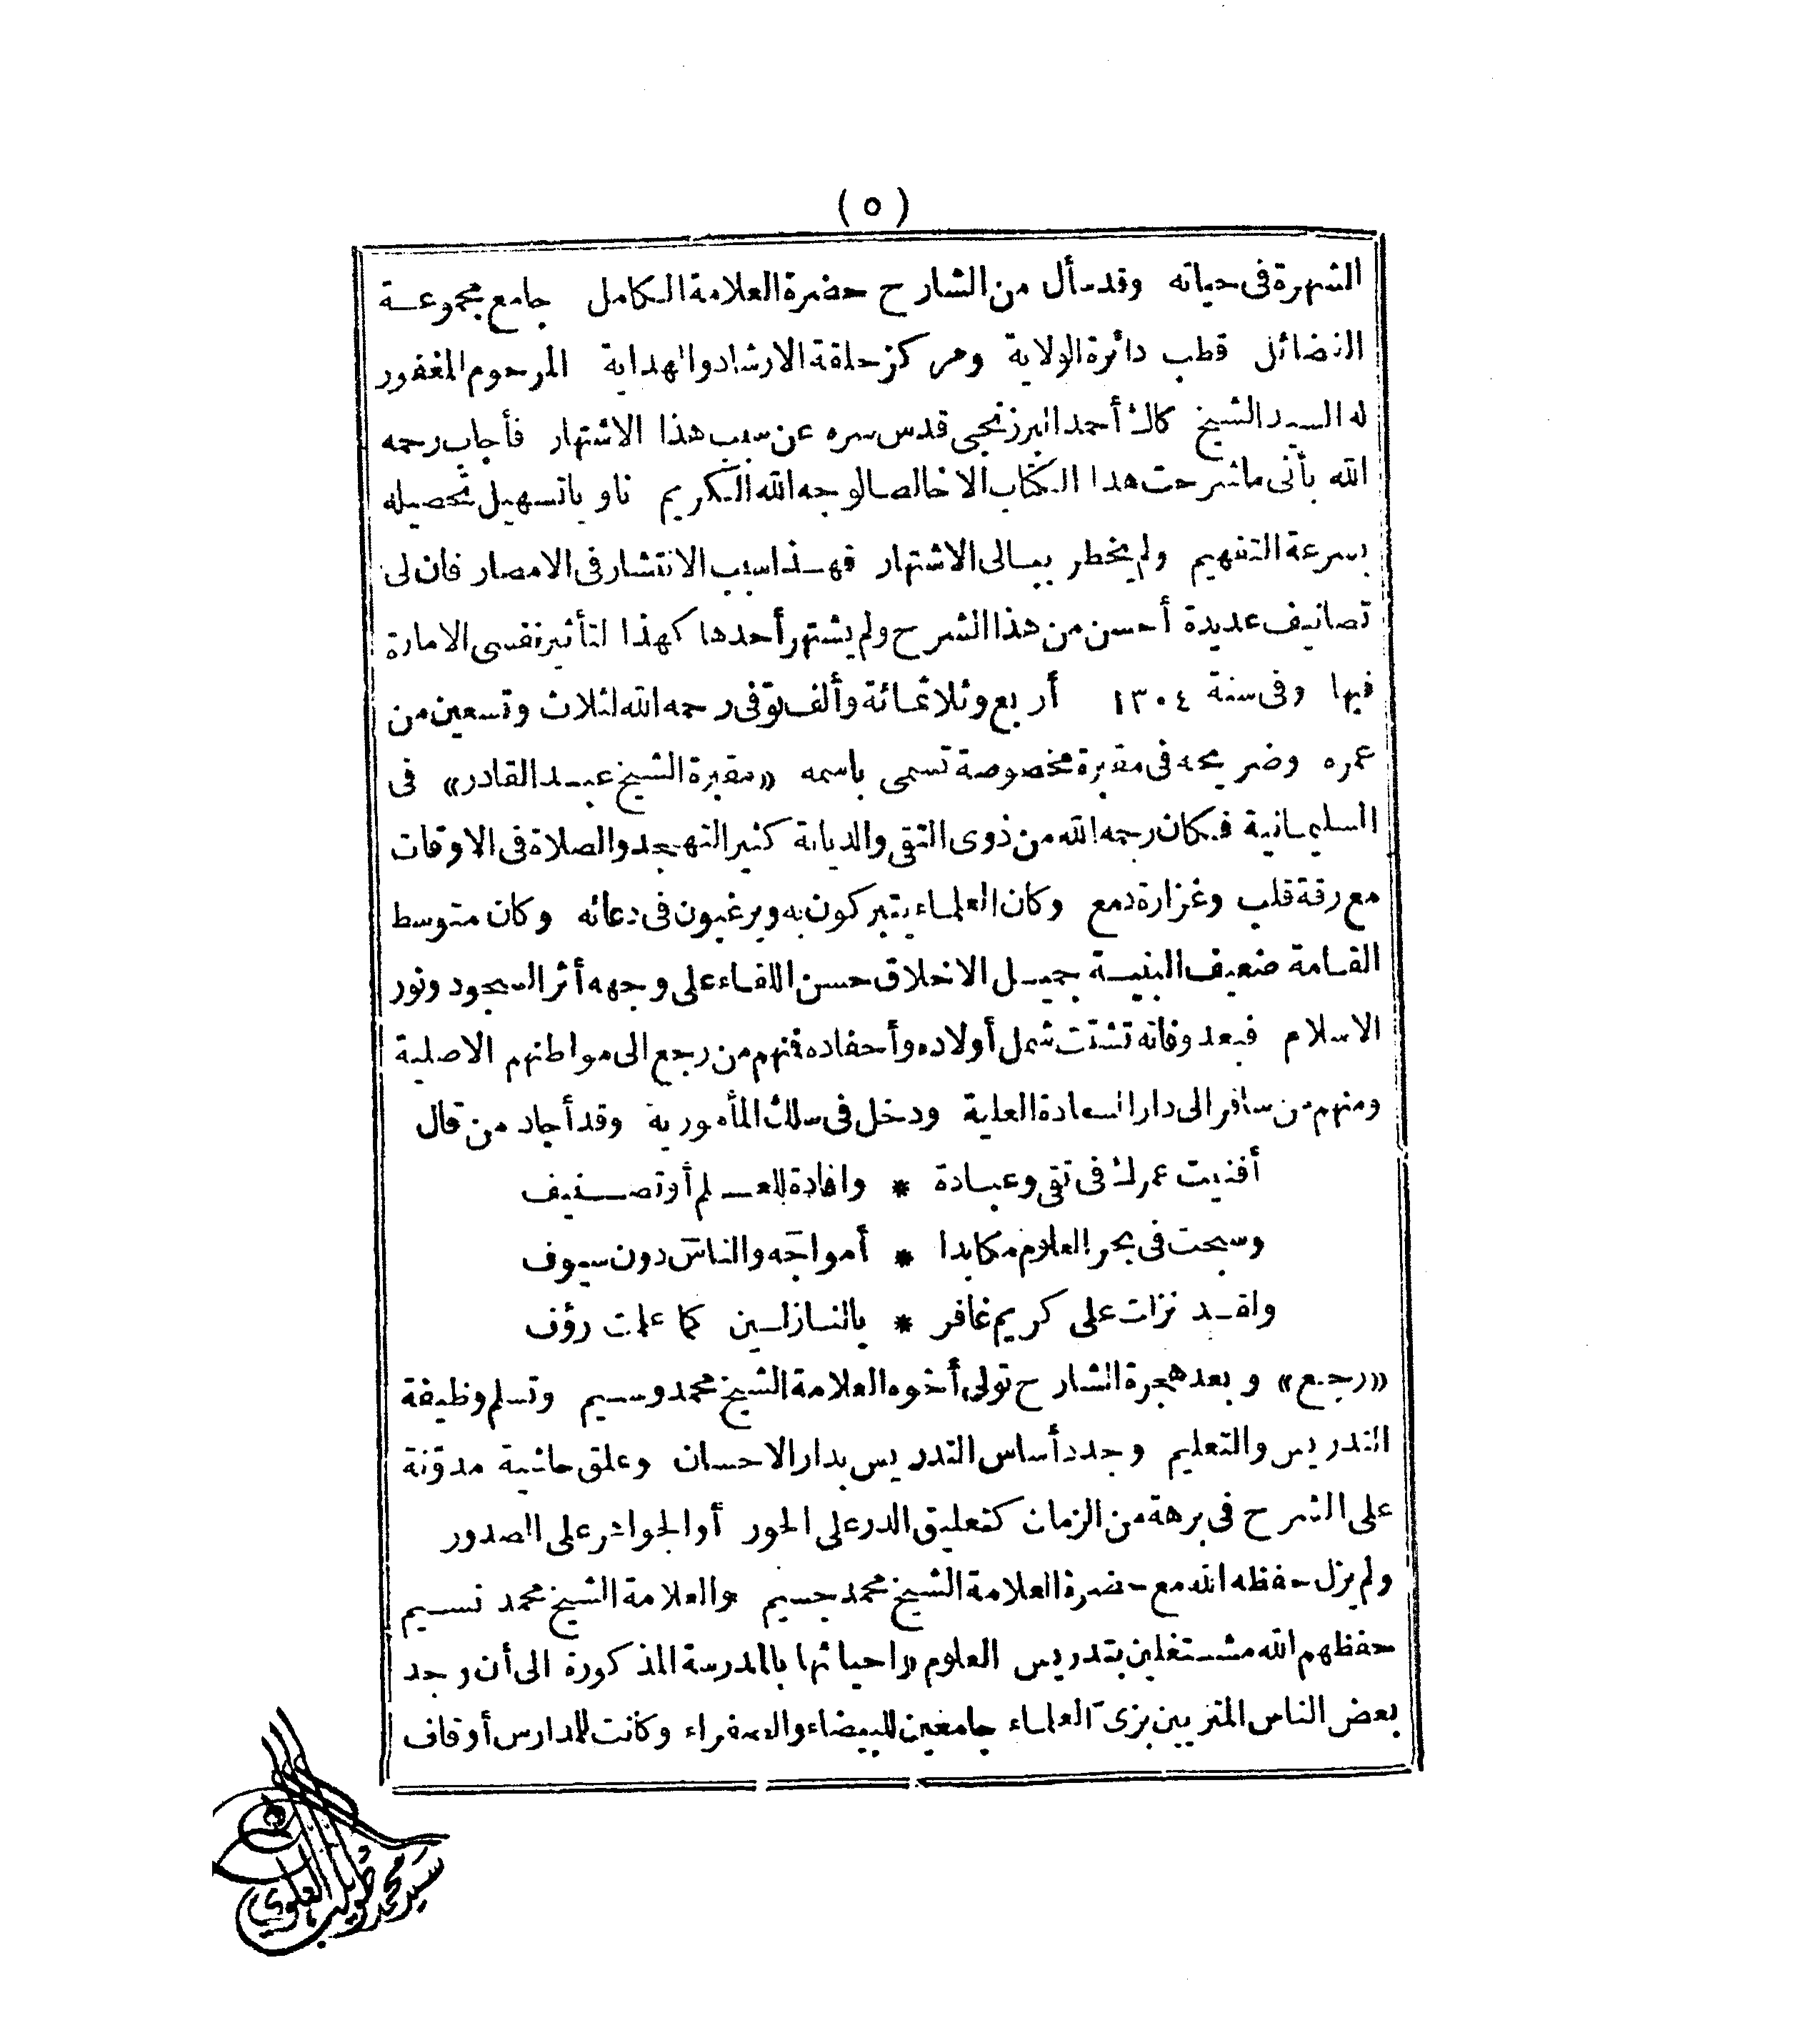 (٥)
الشهرة فى حياته وقد سأل من الشارح حضرة العلامة الكامل جامع مجموعة
الفضائل قطب دائرة الولاية ومركز حلقة الارشاد والهداية المرحوم المغفور
له السيد الشيخ كاك أحمد البرزنجى قدس سره عن سبب هذا الاشتهار فأجاب رحمه
الله بأنى ماشرحت هذا الكتاب الا خالصا لوجه الله الكريم ناويا تسهيل تحصيله
بسرعة التفهيم ولم يخطر ببالى الاشتهار فهذا سبب الانتشار فى الامصار فان لى
تصانيف عديدة أحسن من هذا الشرح ولم يشتهر أحدها كهذا لتأثير نفسى الامارة
فيها وفى سنة ١٣٠٤ أربع وثلاثمائة وألف توفى رحمه الله لثلاث وتسعين من
عمره وضريحه فى مقبرة مخصوصة تسمى باسمه «مقبرة الشيخ عبد القادر» فى
السليمانية فكان رحمه الله من ذوى التقى والديانة كثير التهجد والصلاة فى الاوقات
مع رقة قلب وغزارة دمع وكان العلماء يتبركون به ويرغبون فى دعائه وكان متوسط
القامة ضعيف البنية جميل الاخلاق حسن اللقاء على وجهه أثر السجود ونور
الاسلام فبعد وفاته تشتت شمل أولاده وأحفاده فمنهم من رجع الى مواطنهم الاصلية
ومنهم من سافر الى دار السعادة العلية ودخل فى سلك المأمورية وقد أجاد من قال
أفنيت عمرك فى تقى وعبادة * وافادة للعلم أو تصنيف
وسبحت فى بحر العلوم مكابدا * أمواجه والناس دون سيوف
ولقد نزلت على كريم غافر * بالنازلين كما علمت رؤف
«رجع» وبعد هجرة الشارح تولى أخوه العلامة الشيخ محمد وسيم وتسلم وظيفة
التدريس والتعليم وجدد أساس التدريس بدار الاحسان وعلق حاشية مدونة
على الشرح فى برهة من الزمان كتعليق الدر على الحور أو الجواهر على الصدور
ولم يزل حفظه الله مع حضرة العلامة الشيخ محمد جسيم والعلامة الشيخ محمد نسيم
حفظهم الله مشتغلين بتدريس العلوم واحيائها بالمدرسة المذكورة الى أن وجد
بعض الناس المتزيين بزىّ العلماء جامعين للبيضاء والصفراء وكانت للمدارس أوقاف
سيد محمد طويلب العلوي